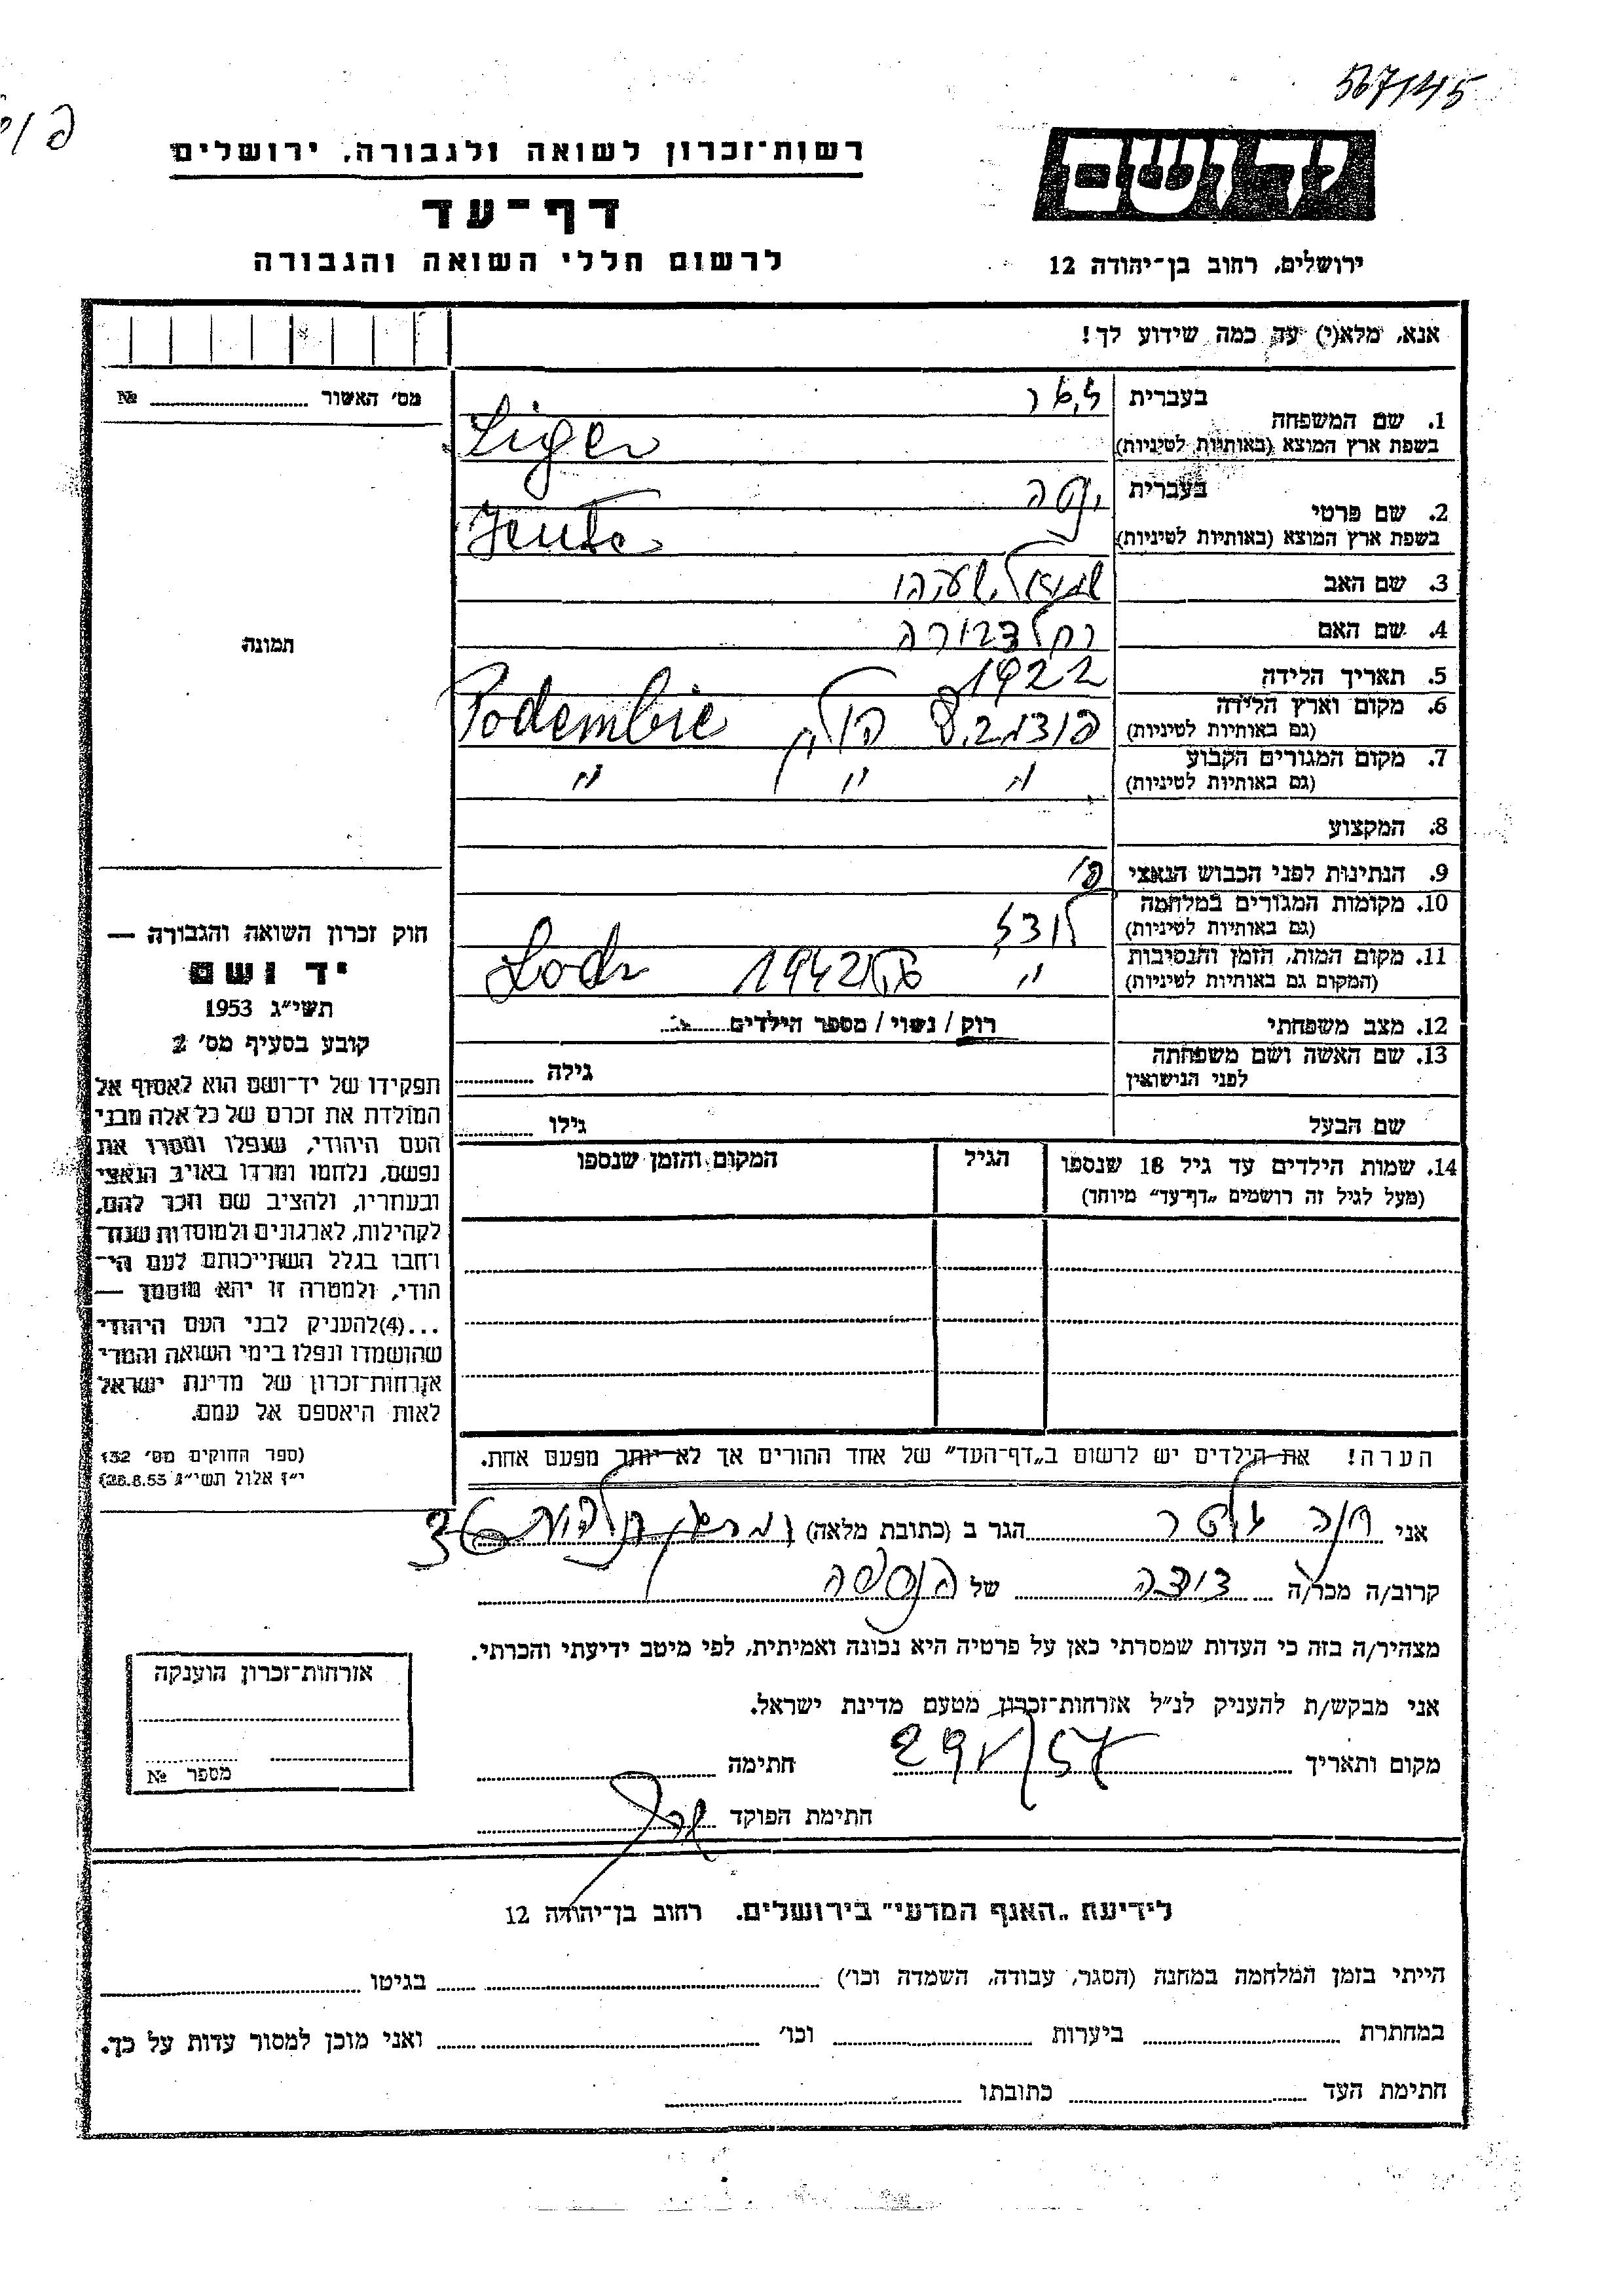 567/145
רשות-זכרון לשואה ולגבורה, ירושלים
דף-עד
לרשום חללי השואה והגבורה
ידושם
ירושלים, רחוב בן-יהודה 12
אנא, מלא(י) עד כמה שידוע לך!
מס' האשור № 
1. שם המשפחה
בעברית
בשפת ארץ המוצא (באותיות לטיניות)
Liger
2. שם פרטי
בעברית
בשפת ארץ המוצא (באותיות לטיניות)
Jente
3. שם האב
4. שם האם רחל דבורה
5. תאריך הלידה 1922
6. מקום וארץ הלידה
(גם באותיות לטיניות)
פולין Podembie
7. מקום המגורים הקבוע
(גם באותיות לטיניות)
" " "
8. המקצוע
9. הנתינות לפני הכבוש הנאצי פו'
10. מקומות המגורים במלחמה
(גם באותיות לטיניות)
לודז'
11. מקום המות, הזמן והנסיבות
(המקום גם באותיות לטיניות)
" 1942 Lodz
12. מצב משפחתי רוק / נשוי / מספר הילדים
13. שם האשה ושם משפחתה
לפני הנישואין
גילה
שם הבעל גילו
14. שמות הילדים עד גיל 18 שנספו
(מעל לגיל זה רושמים „דף-עד" מיוחד)
הגיל
המקום והזמן שנספו
הערה! את הילדים יש לרשום ב„דף-העד" של אחד ההורים אך לא יותר מפעם אחת.
תמונה
חוק זכרון השואה והגבורה —
יד ושם
תשי"ג 1953
קובע בסעיף מס' 2
תפקידו של יד-ושם הוא לאסוף אל
המולדת את זכרם של כל אלה מבני
העם היהודי, שנפלו ומסרו את
נפשם, נלחמו ומרדו באויב הנאצי
ובעוזריו, ולהציב שם וזכר להם,
לקהילות, לארגונים ולמוסדות שנח-
רחבו בגלל השתייכותם לעם הי-
הודי, ולמטרה זו יהא מוסמך —
...(4) להעניק לבני העם היהודי
שהושמדו ונפלו בימי השואה והמרי
אזרחות-זכרון של מדינת ישראל
לאות היאספם אל עמם.
(ספר החוקים מס' 132
י"ז אלול תשי"ג 28.8.53)
אני חנה הגר ב (כתובת מלאה) 36
קרוב/ה מכר/ה דודה של הנספה
מצהיר/ה בזה כי העדות שמסרתי כאן על פרטיה היא נכונה ואמיתית, לפי מיטב ידיעתי והכרתי.
אני מבקש/ת להעניק לנ"ל אזרחות-זכרון מטעם מדינת ישראל.
מקום ותאריך חתימה
חתימת הפוקד
אזרחות-זכרון הוענקה
מספר №
לידיעת „האגף המדעי" בירושלים. רחוב בן-יהודה 12
הייתי בזמן המלחמה במחנה (הסגר, עבודה, השמדה וכו') בגיטו
במחתרת ביערות וכו' ואני מוכן למסור עדות על כך.
חתימת העד כתובתו